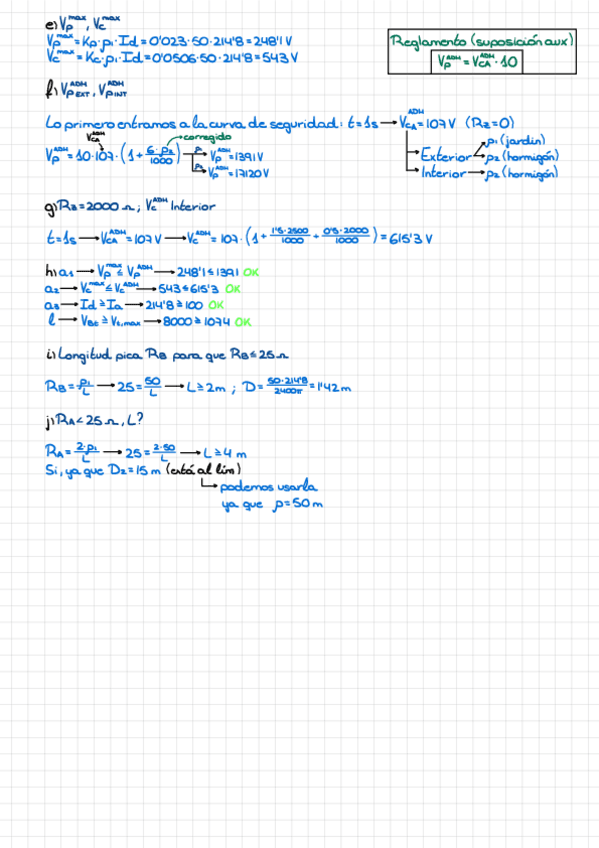 e) Vp^max, Vc^max
Vp^max = Kp·ρ1·Id = 0'023·50·214'8 = 248'1 V
Vc^max = Kc·ρ1·Id = 0'0506·50·214'8 = 543 V
Reglamento (suposición aux)
Vp^ADM = VCA^ADM · 10
f) Vp EXT^ADM, Vp INT^ADM
Lo primero entramos a la curva de seguridad: t = 1s → VCA^ADM = 107 V (R2=0)
Exterior → ρ1 (jardín)
ρ2 (hormigón)
Interior → ρ2 (hormigón)
VCA^ADM
corregido
Vp^ADM = 10·107·(1 + 6·ρ2/1000) → ρ1 → Vp^ADM = 1391 V
ρ2 → Vp^ADM = 17120 V
g) R3 = 2000 Ω; Vc^ADM Interior
t = 1s → VCA^ADM = 107 V → Vc^ADM = 107·(1 + 1'5·2500/1000 + 0'5·2000/1000) = 615'3 V
h) a1 → Vp^max ≤ Vp^ADM → 248'1 ≤ 1391 OK
a2 → Vc^max ≤ Vc^ADM → 543 ≤ 615'3 OK
a3 → Id ≥ Ia → 214'8 ≥ 100 OK
l → VBt ≥ Vt,max → 8000 ≥ 1074 OK
i) Longitud pica RB para que RB ≤ 25 Ω
RB = ρ1/L → 25 = 50/L → L ≥ 2m ; D = 50·214'8/2400π = 1'42 m
j) RA < 25 Ω, L?
RA = 2·ρ1/L → 25 = 2·50/L → L ≥ 4 m
Si, ya que D2 = 15 m (está al lím)
podemos usarla
ya que ρ = 50 m